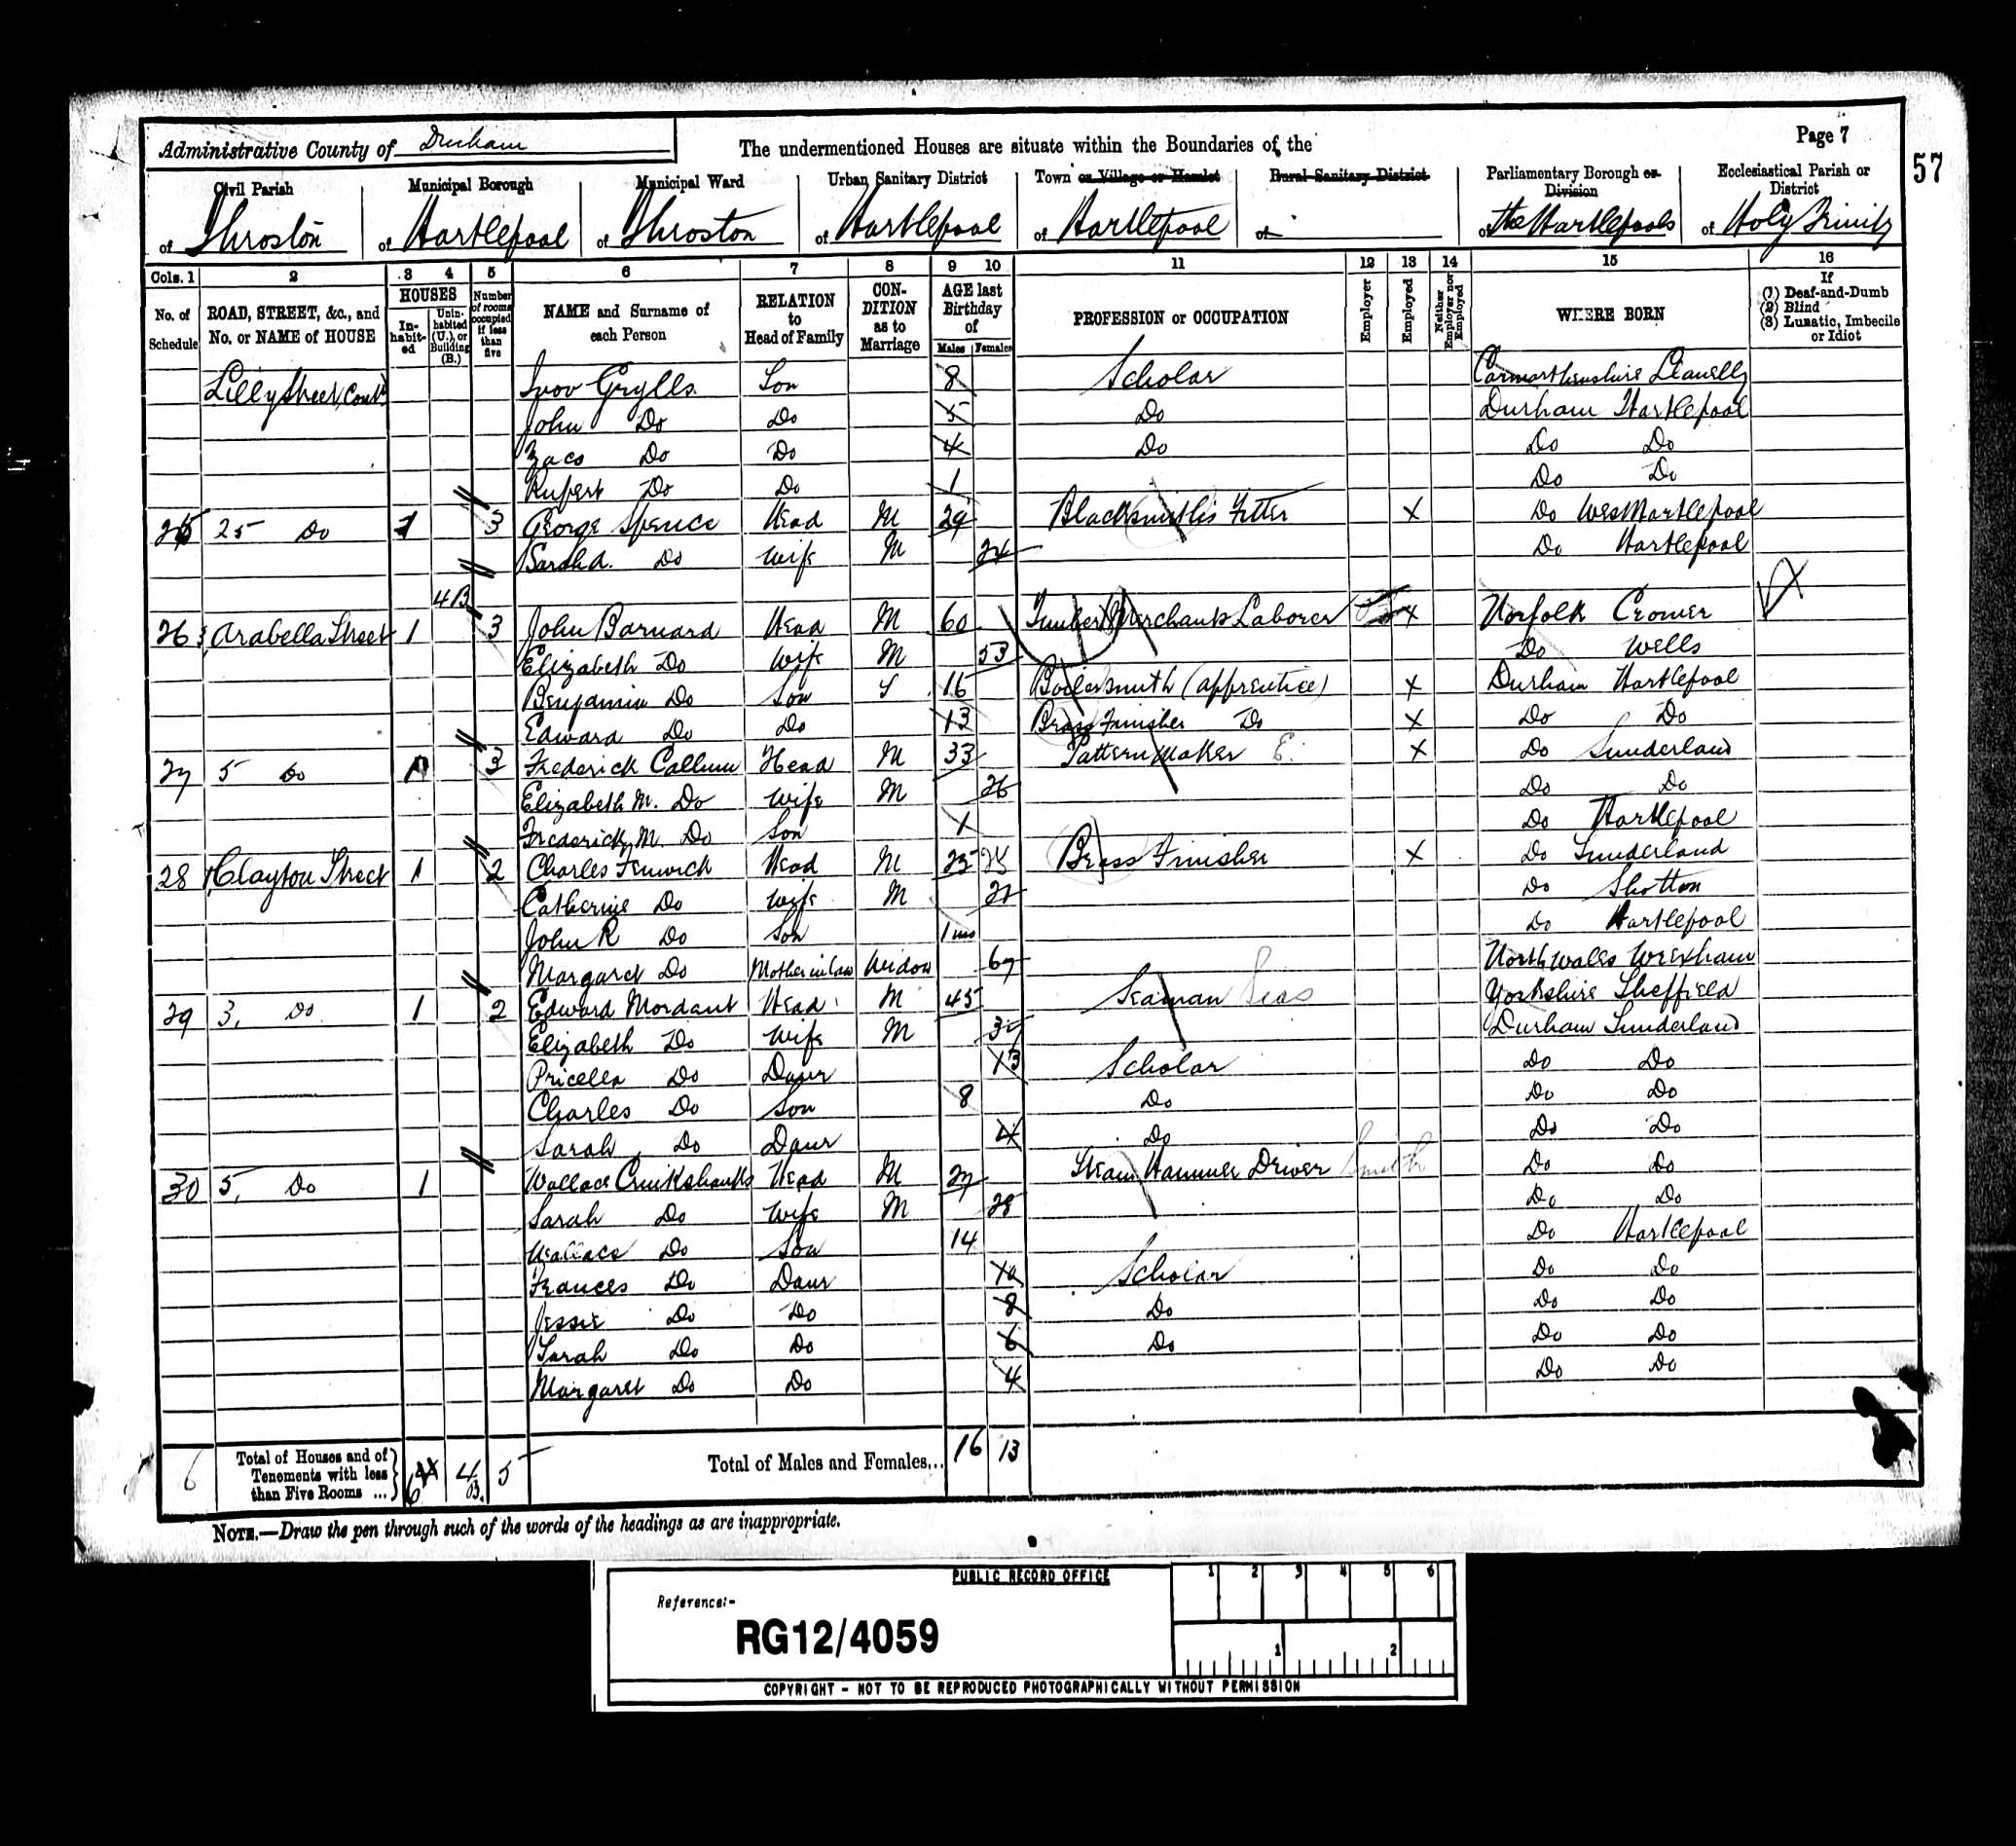 Page 7
57
Administrative County of Durham
The undermentioned Houses are situate within the Boundaries of the
Civil Parish of Throston
Municipal Borough of Hartlepool
Municipal Ward of Throston
Urban Sanitary District of Hartlepool
Town or Village or Hamlet of Hartlepool
Rural Sanitary District of
Parliamentary Borough or Division of the Hartlepools
Ecclesiastical Parish or District of Holy Trinity
Cols. 1 2 3 4 5 6 7 8 9 10 11 12 13 14 15 16
No. of Schedule
ROAD, STREET, &c., and No. or NAME of HOUSE
HOUSES
Inhabited
Uninhabited (U.), or Building (B.)
Number of rooms occupied if less than five
NAME and Surname of each Person
RELATION to Head of Family
CONDITION as to Marriage
AGE last Birthday of
Males Females
PROFESSION or OCCUPATION
Employer
Employed
Neither Employer nor Employed
WHERE BORN
If (1) Deaf-and-Dumb (2) Blind (3) Lunatic, Imbecile or Idiot
Lilly Street, Contd Ivor Grylls Son 8 Scholar Carmarthenshire Llanelly
John Do Do 5 Do Durham Hartlepool
Do Do 4 Do Do Do
Rupert Do Do 1 Do Do
25 25 Do 1 3 George Spence Head M 29 Blacksmiths Fitter X Do West Hartlepool
Sarah A. Do Wife M 24 Do Hartlepool
4B
26 3, Arabella Street 1 3 John Barnard Head M 60 Timber Merchants Laborer X Norfolk Cromer
Elizabeth Do Wife M 53 Do Wells
Benjamin Do Son S 16 Boilersmith (apprentice) X Durham Hartlepool
Edward Do Do 13 Brass Finisher Do X Do Do
27 5 Do 1 3 Frederick Callum Head M 33 Pattern Maker E. X Do Sunderland
Elizabeth M. Do Wife M 26 Do Do
Frederick M. Do Son 1 Do Hartlepool
28 1, Clayton Street 1 2 Charles Fenwick Head M 25 Brass Finisher X Do Sunderland
Catherine Do Wife M Do Shotton
John R Do Son 1 mo Do Hartlepool
Margaret Do Mother in law Widow 67 North Wales Wrexham
29 3, Do 1 2 Edward Mordant Head M 45 Seaman Seas Yorkshire Sheffield
Elizabeth Do Wife M 37 Durham Sunderland
Pricella Do Daur 13 Scholar Do Do
Charles Do Son 8 Do Do Do
Sarah Do Daur 4 Do Do Do
30 5, Do 1 Wallace Cruikshanks Head M 27 Steam Hammer Driver Smith Do Do
Sarah Do Wife M 28 Do Do
Wallace Do Son 14 Do Hartlepool
Frances Do Daur 10 Scholar Do Do
Jessie Do Do 8 Do Do Do
Sarah Do Do 6 Do Do Do
Margaret Do Do 4 Do Do
6 Total of Houses and of Tenements with less than Five Rooms ... 6 4 B. 5 Total of Males and Females... 16 13
NOTE.—Draw the pen through such of the words of the headings as are inappropriate.
PUBLIC RECORD OFFICE
Reference:-
RG12/4059
1 2 3 4 5 6
1 2
COPYRIGHT - NOT TO BE REPRODUCED PHOTOGRAPHICALLY WITHOUT PERMISSION